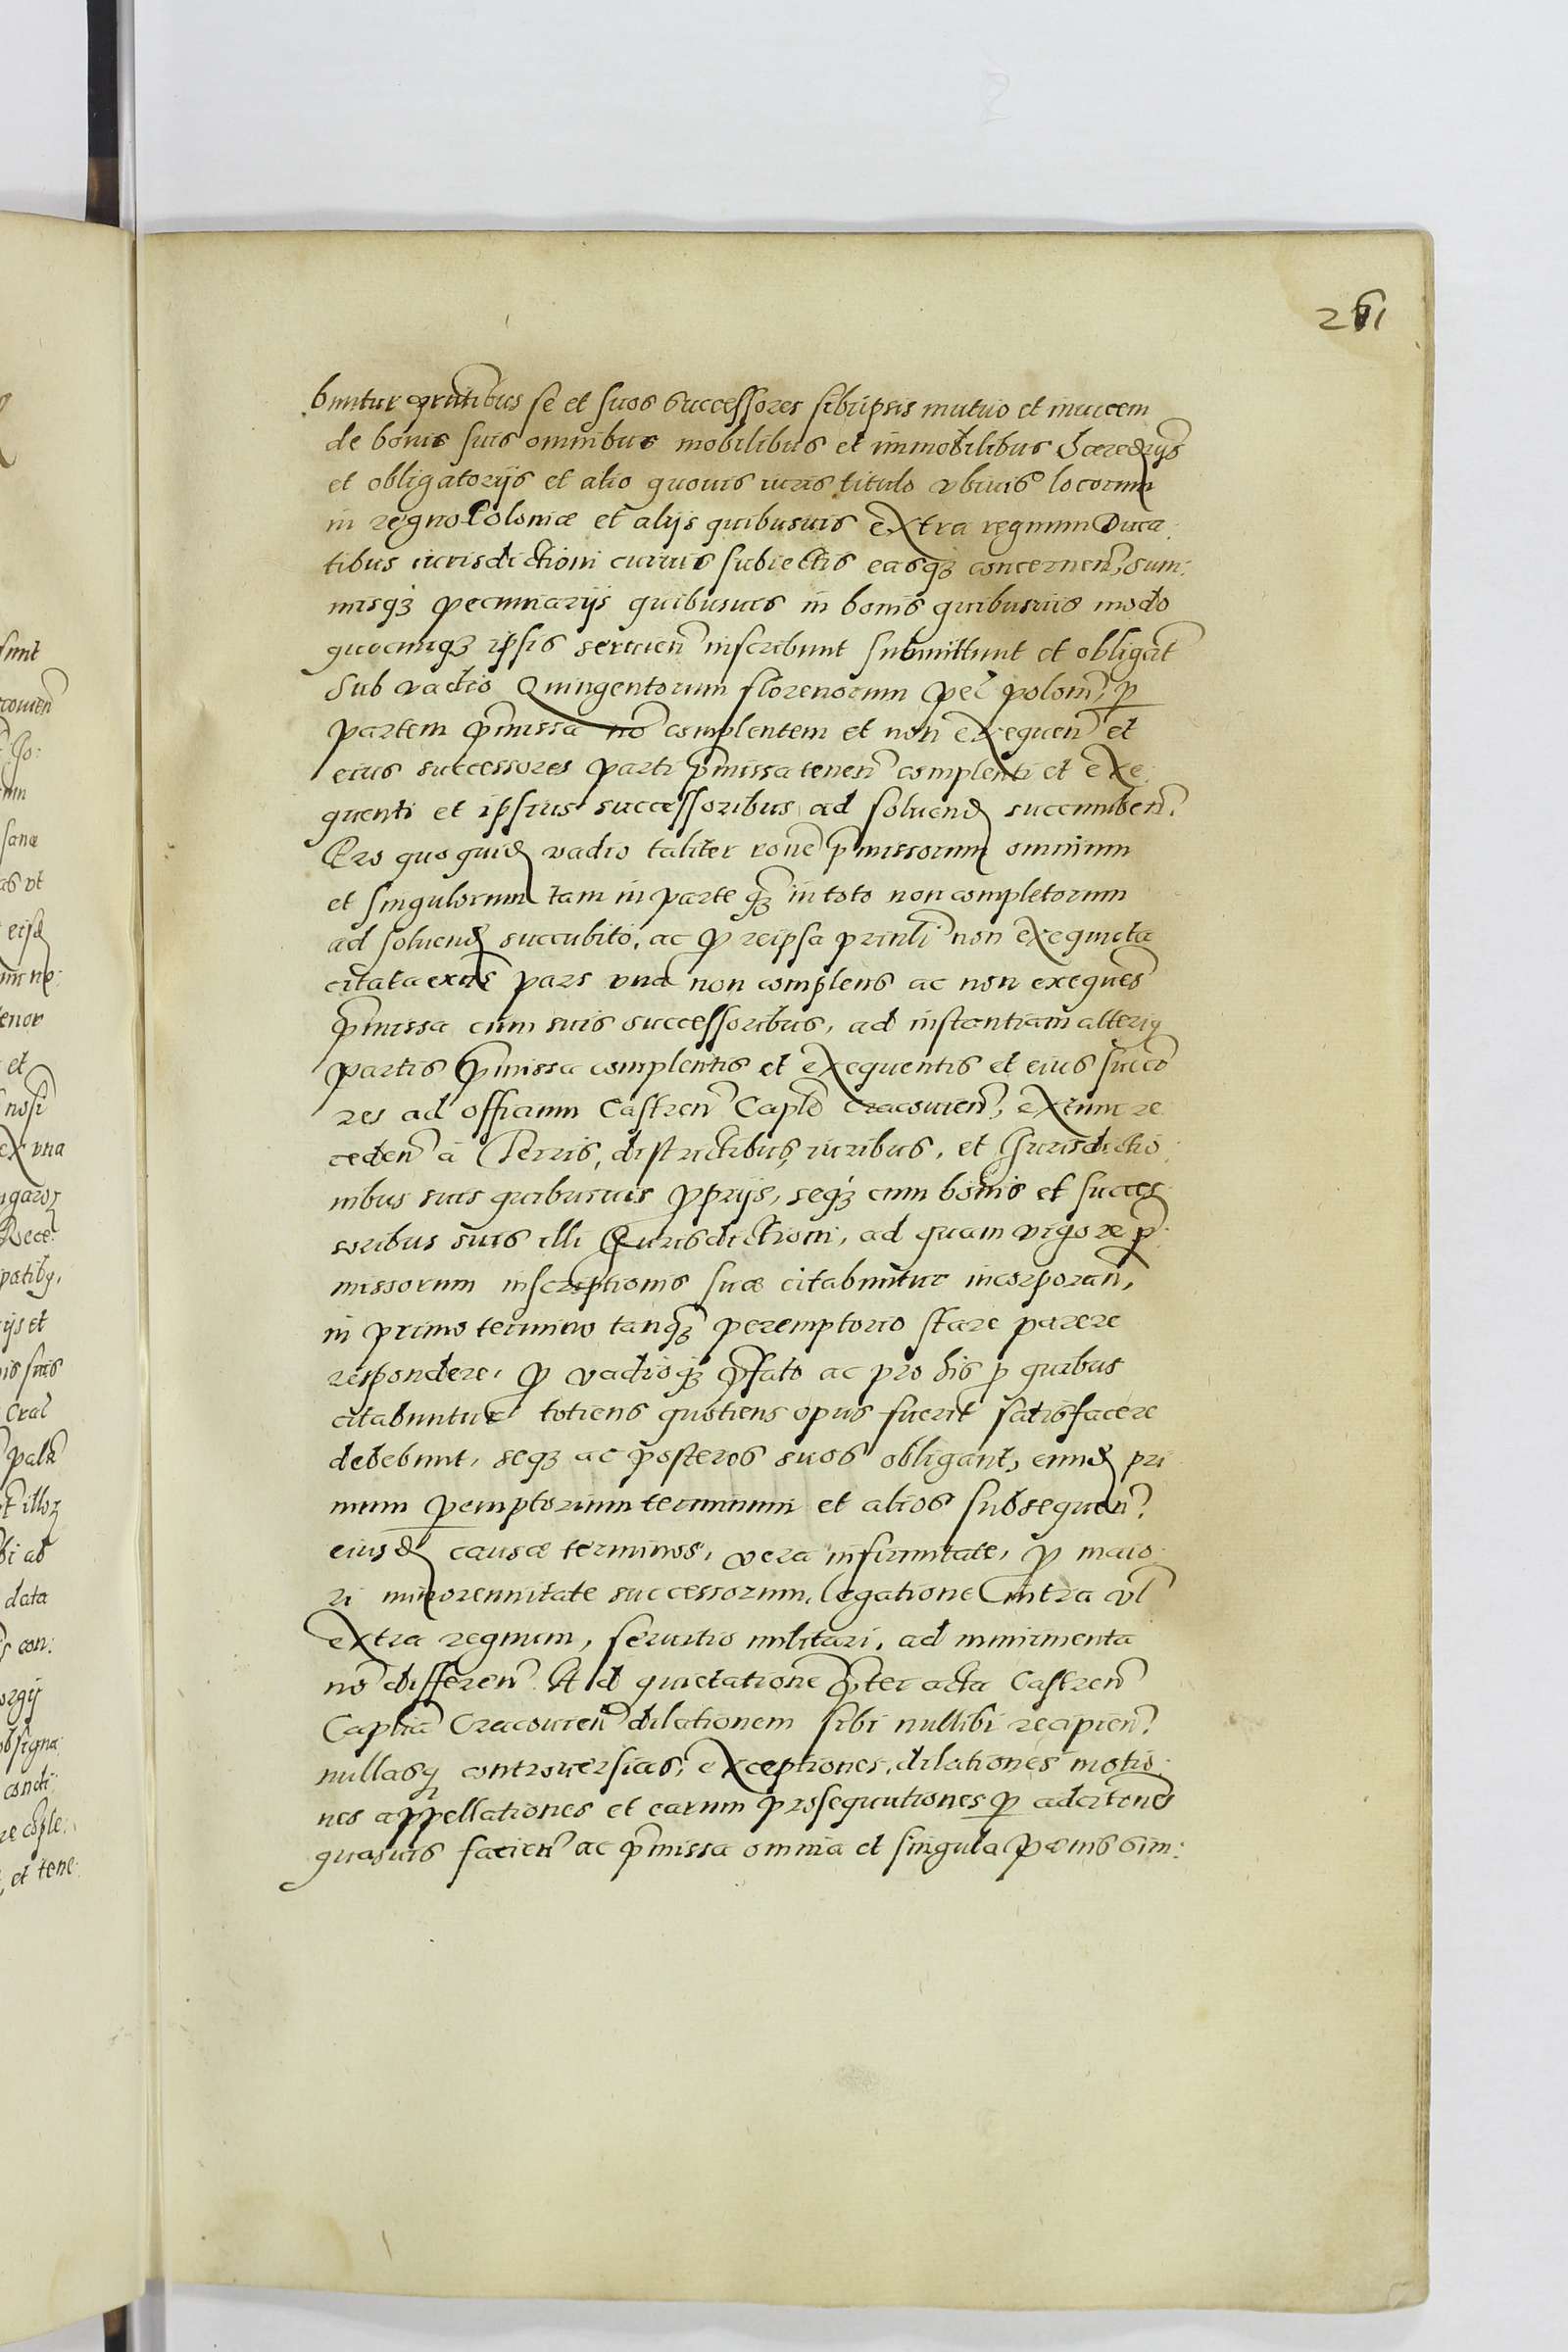 261
buntur prntibus se et suos Successores sibiipsis mutuo et inuicem
de bonis suis omnibus mobilibus et immobilibus Haeredrys
et obligatorijs et alio quouis iuris titulo vbiuis locorum
in regno Poloniæ et alijs quibusuis extra regnum Duca:
tibus iurisdictioni cuiuis subiectis easq3 concernen, sum:
misq3 pecuniarijs quibusuis in bonis quibusuis modo
quocunq3 ipsis seruien inscribunt submittunt et obligāt
Sub vadio Quingentorum florenorum pel polon, p
partem p̄missa nō complentem et non exequen et
eius successores parti p̄missa tenen complenti et exe:
quenti et ipsius successoribus ad soluend succumben.
Pro quo quid vadio taliter rōne p̄missorum omnium
et singulorum tam in parte q3 in toto non completorum
ad soluend succubito, ac p reipsa prinli non exequuta
citata exns pars vna non complens ac non exequēs
p̄missa cum suis successoribus, ad instantiam alteriq
partis p̄missa complentis et exequentis et eius succo
res ad officium Castren Caplē Cracouien, extunc re:
ceden à Terris, districtibus, iuribus, et Jurisdictio:
nibus suis quibusuis pprijs, seq3 cum bonis et succes
soribus suis illi Jurisdictioni, ad quam vigore p̄:
missorum inscriptionis suæ citabuntur incorporan,
in primo termino tanq3 peremptorio stare parere
respondere, p vadioq3 p̄fato ac pro his p quibus
citabuntur totiens quotiens opus fuerit satisfacere
debebunt, seq3 ac posteros suos obligant, eund pri
mum pemptorium terminum et alios subsequen.
eiusd causæ terminos, vera infirmitate, p maio:
ri minorennitate successorum, legatione intra vl
extra regnum, seruitio militari, ad munimenta
nō differen Ad quietatione p̄ter acta Castren
Caplia Cracouien dilationem sibi nullibi recipien.
nullasq controuersias, exceptiones, dilationes motio:
nes appellationes et earum prosequutiones p adcitone
quasuis facien ac p̄missa omnia et singula pænis sim: